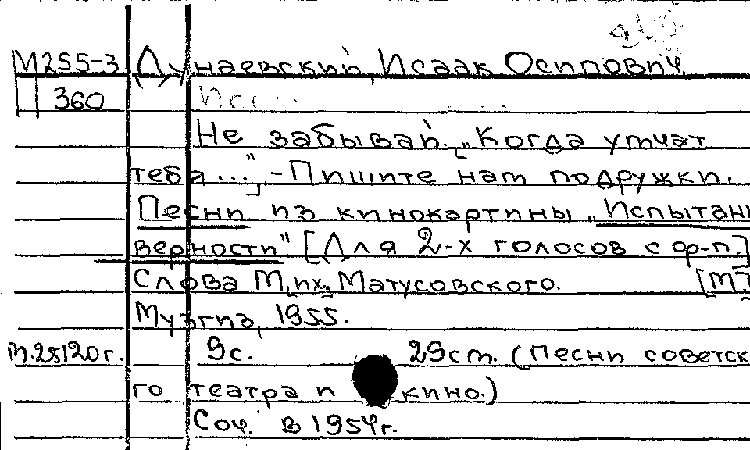 М255-3 Дунаевский, Исаак Осипович
360
Не забывай. „Когда умчат
тебя...", - Пишите нам подружки.
Песни из кинокартины „Испытан
верности" [Для 2-х голосов с ф-п.]
Слова Мих. Матусовского.
Музгиз, 1955.
9с. 29см. (Песни советск
го театра и кино.)
Соч. в 1954г.